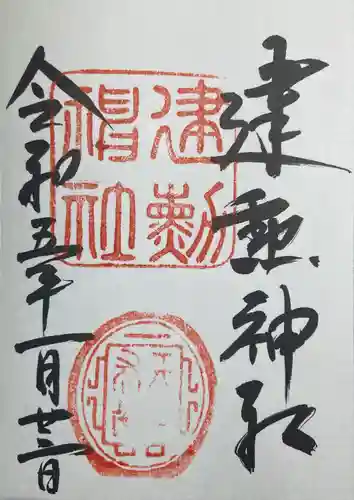 建勲神社
令和五年一月廿二日
建勲
神社